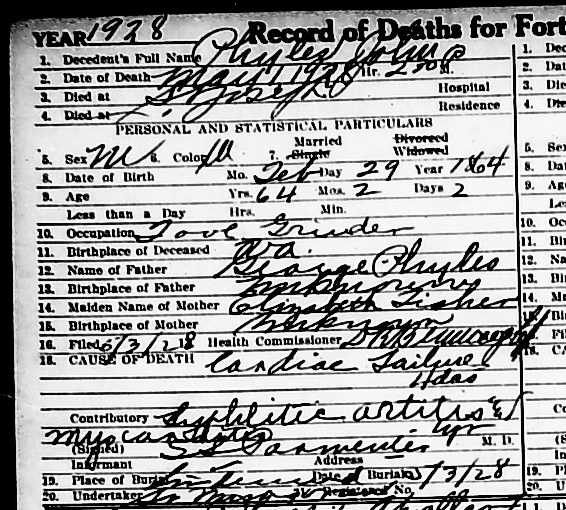 YEAR 1928 Record of Deaths for Fort
1. Decedent's Full Name Phyles John
2. Date of Death May 1 1928 Hr. 2 30 P M.
3. Died at St Joseph Hospital
4. Died at Residence
PERSONAL AND STATISTICAL PARTICULARS
Married Divorced
5. Sex M 6. Color W 7. Single Widowed
8. Date of Birth Mo. Feb Day 29 Year 1864
9. Age Yrs. 64 Mos. 2 Days 2
Less than a Day Hrs. Min.
10. Occupation Tool Grinder
11. Birthplace of Deceased
12. Name of Father George Phyles
13. Birthplace of Father Unknown
14. Maiden Name of Mother Elizabeth Fisher
15. Birthplace of Mother Unknown
16. Filed 5/3/28 Health Commissioner
18. CAUSE OF DEATH Cardiac Failure
4 das
Contributory Syphilitic artitis &
Myocarditis yr
(Signed) Parmenter M. D.
Informant Address
19. Place of Burial Date of Burial 5/3/28
20. Undertaker Registered No.
1. Dec
2. Dat
3. Die
4. Die
5. Sex
8. Dat
9. Age
Les
10. Occ
11. Bir
12. Na
13. Bir
14. Ma
Bir
16. File
18. CA
Co
(S
Inf
19. Pla
20. Un